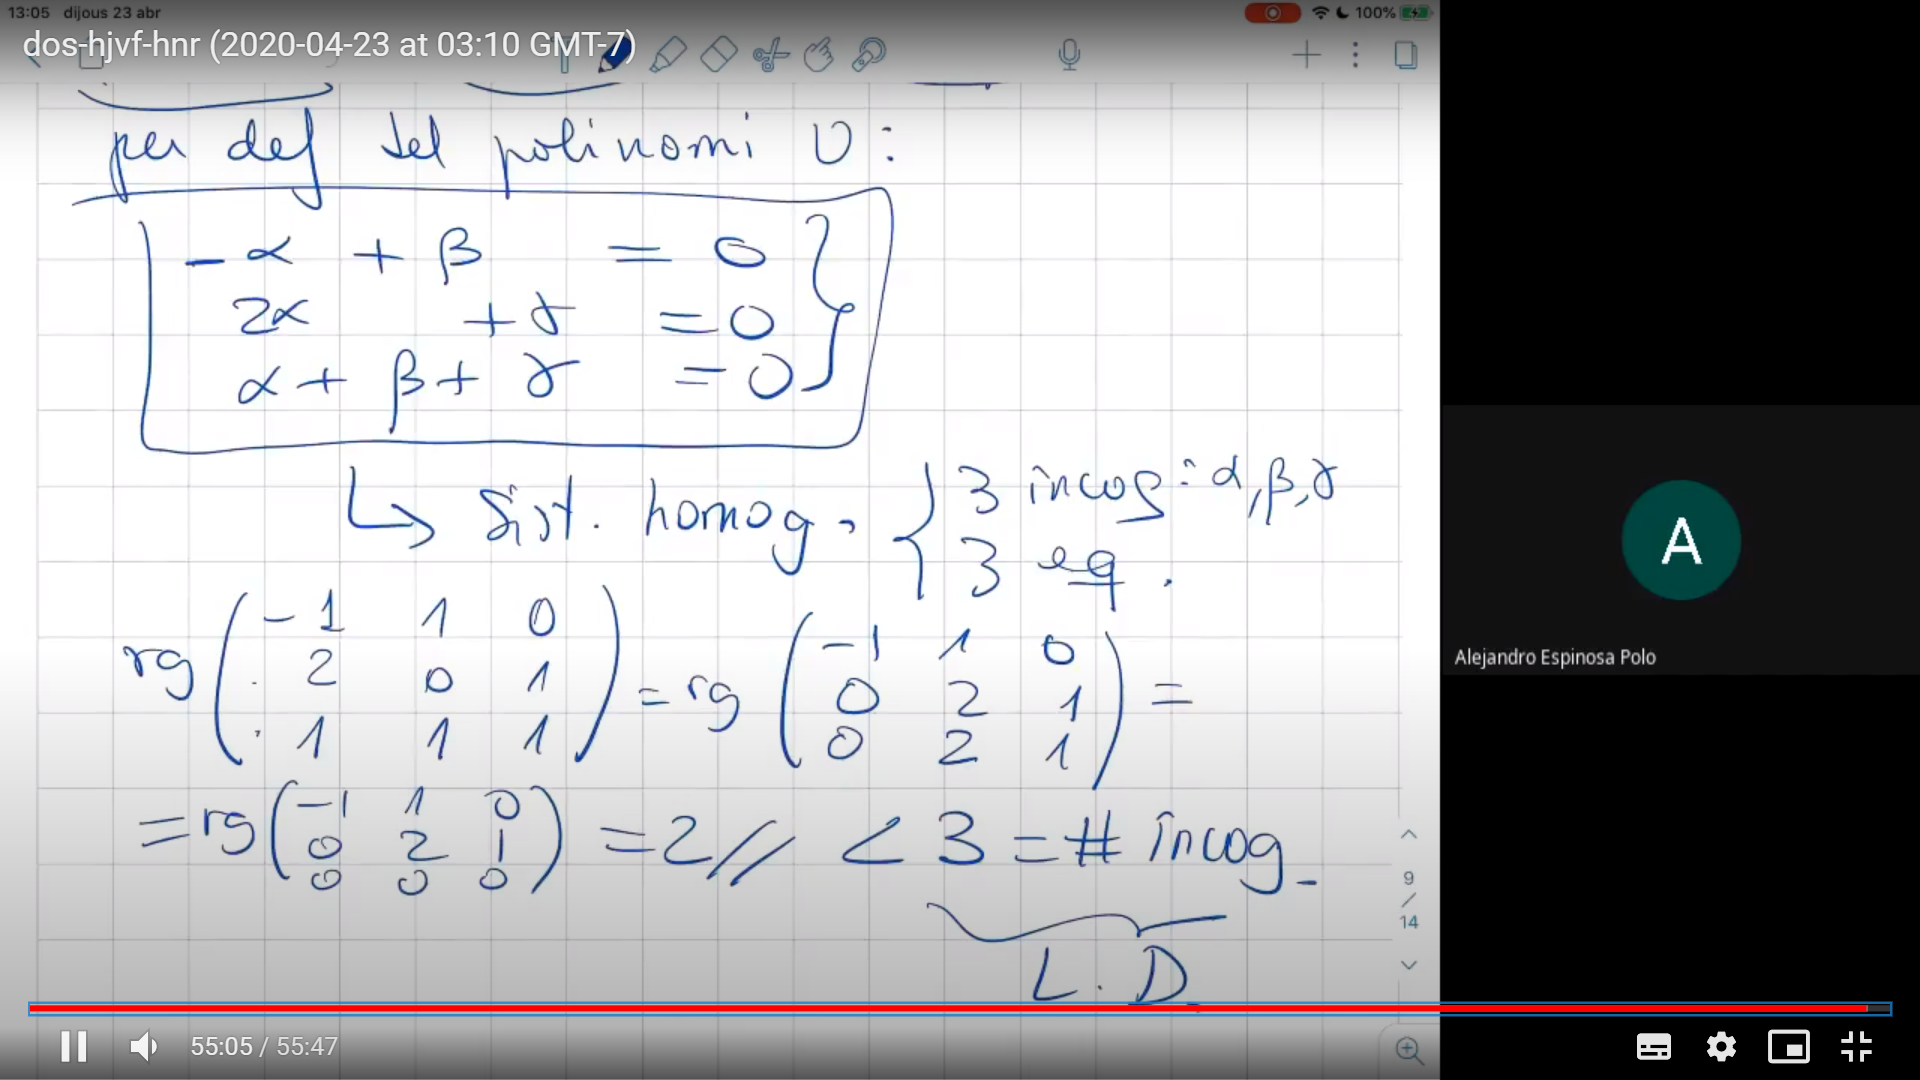 13:05 dijous 23 abr
100%
dos-hjvf-hnr (2020-04-23 at 03:10 GMT-7)
per def del polinomi 0:
-α + β = 0
2α + γ = 0
α + β + γ = 0
↳ Sist. homog. { 3 incog: α, β, γ
3 eq.
rg ( -1 1 0
2 0 1
1 1 1 ) = rg ( -1 1 0
0 2 1
0 2 1 ) =
= rg ( -1 1 0
0 2 1
0 0 0 ) = 2 // < 3 = # incog.
L. D.
9
/
14
A
Alejandro Espinosa Polo
55:05 / 55:47